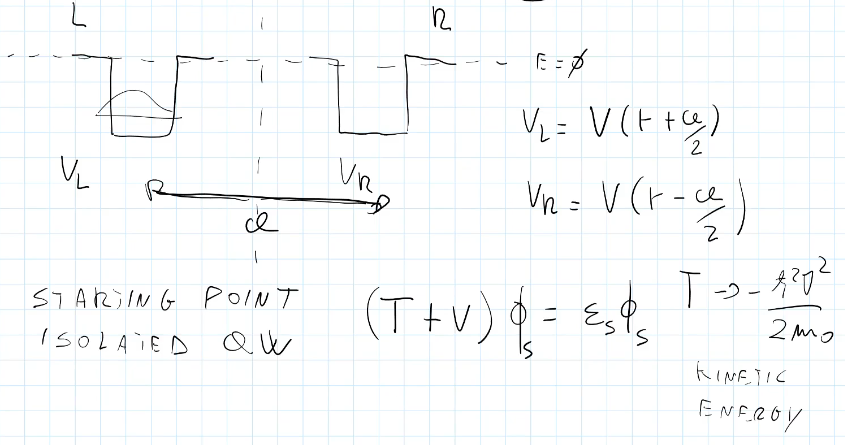 L R
E = ∅
V_L = V(r + a/2)
V_L V_R
V_R = V(r - a/2)
a
STARTING POINT
ISOLATED QW
(T + V) ϕ_s = ε_s ϕ_s
T → - ℏ²∇² / 2m₀
KINETIC
ENERGY